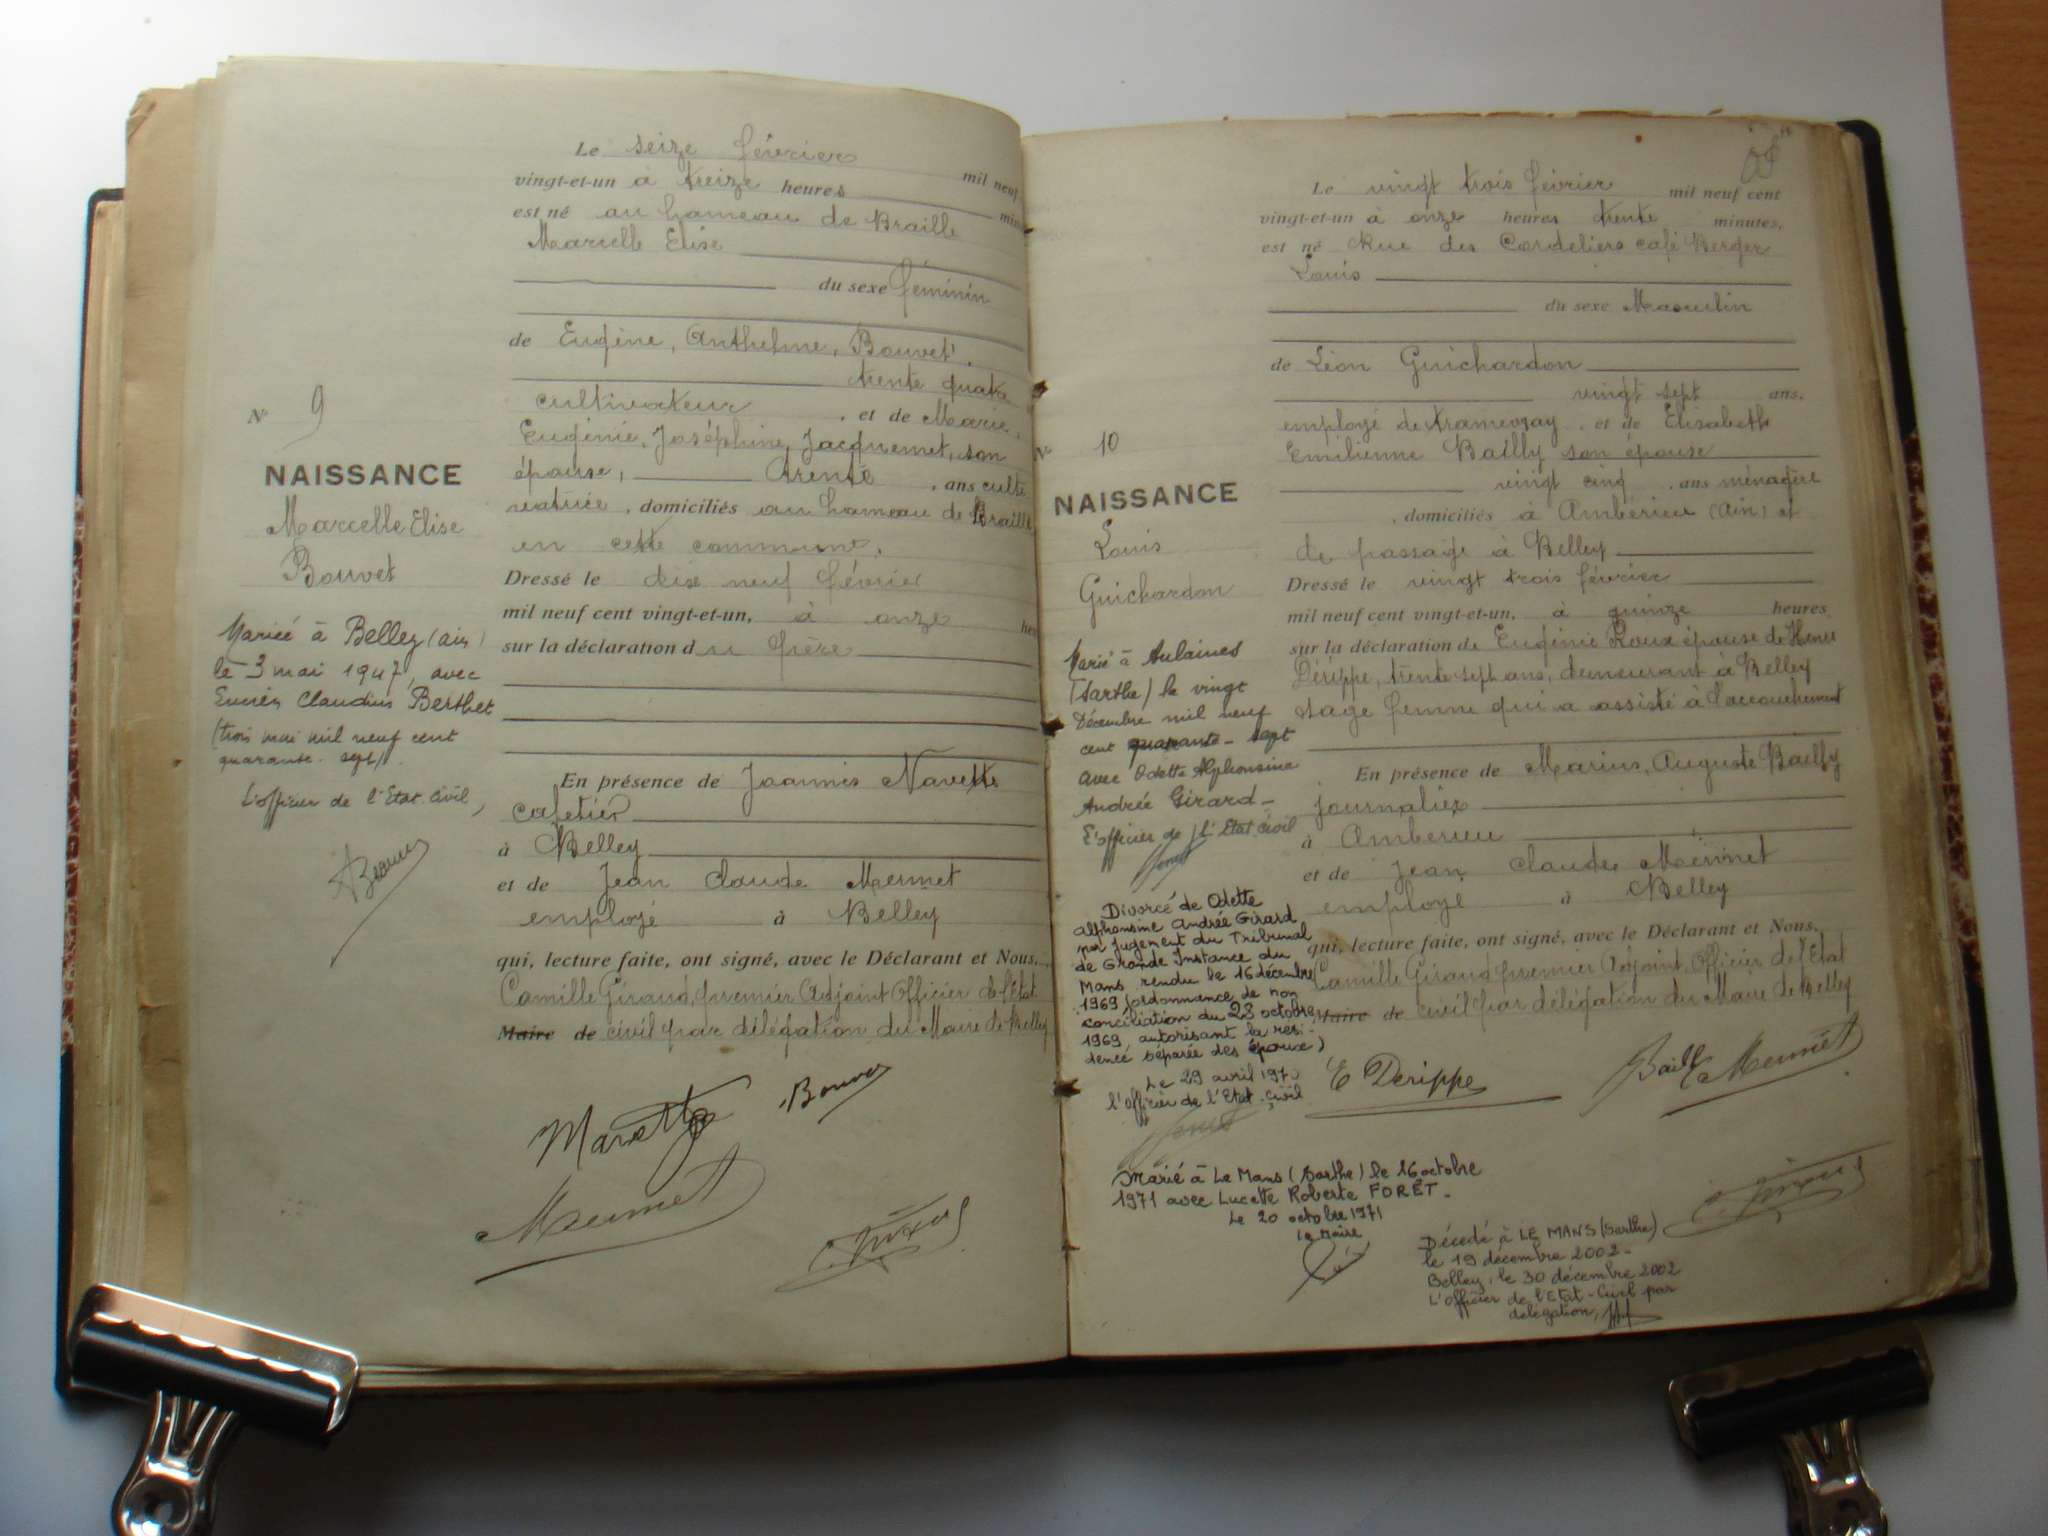 Le seize février mil neuf
vingt-et-un à treize heures minu
est né au hameau de Braille
Marcelle Elise
du sexe féminin
de Eugène, Anthelme, Bouvet,
trente quatre
cultivateur, et de Marie,
Eugénie, Joséphine, Jacquemet, son
épouse, trente, ans culti
vatrice, domiciliés au hameau de Braille
en cette commune.
Dressé le dix neuf février
mil neuf cent vingt-et-un, à onze heu
sur la déclaration du père
En présence de Joannis Navette
cafetier
à Belley
et de Jean Claude Mermet
employé à Belley
qui, lecture faite, ont signé, avec le Déclarant et Nous,
Camille Giraud, premier Adjoint Officier de l'Etat
Maire de civil par délégation du Maire de Belley
Bouvet
Mermet
C. Giraud
N° 9
NAISSANCE
Marcelle Elise
Bouvet
Mariée à Belley (ain)
le 3 mai 1947, avec
Lucien Claudius Berthet
(trois mai mil neuf cent
quarante-sept).
L'officier de l'Etat-Civil,
Le vingt trois février mil neuf cent
vingt-et-un à onze heures trente minutes,
est né Rue des Cordeliers café Berger
Louis
du sexe Masculin
de Léon Guichardon
vingt sept ans,
employé de tramway, et de Elisabeth
Emilienne Bailly son épouse
vingt cinq, ans ménagère
, domiciliés à Ambérieu (Ain) et
de passage à Belley
Dressé le vingt trois février
mil neuf cent vingt-et-un, à quinze heures
sur la déclaration de Eugénie Roux épouse de Henri
Dérippe, trente sept ans, demeurant à Belley
sage femme qui a assisté à l'accouchement
En présence de Marius, Auguste Bailly
journalier
à Amberieu
et de Jean Claude Mermet
employé à Belley
qui, lecture faite, ont signé, avec le Déclarant et Nous,
Camille Giraud premier Adjoint Officier de l'Etat
Maire de civil par délégation du Maire de Belley
E Derippe
Bailly Mermet
C. Giraud
N° 10
NAISSANCE
Louis
Guichardon
Marié à Aulaines
(Sarthe) le vingt
Décembre mil neuf
cent quarante-sept
avec Odette Alphonsine
Andrée Girard-
L'officier de l'Etat civil
Divorcé de Odette
Alphonsine Andrée Girard
par jugement du Tribunal
de Grande Instance du
Mans rendu le 16 décembre
1969 (ordonnance de non
conciliation du 28 octobre
1969, autorisant la rési-
dence séparée des époux)
Le 29 avril 1970
l'Officier de l'Etat-Civil
Marié à Le Mans (Sarthe) le 16 octobre
1971 avec Lucette Roberte FORÊT.
Le 20 octobre 1971
Le Maire
Décédé à LE MANS (Sarthe)
le 19 décembre 2002-
Belley, le 30 décembre 2002
L'Officier de l'Etat-Civil par
délégation,